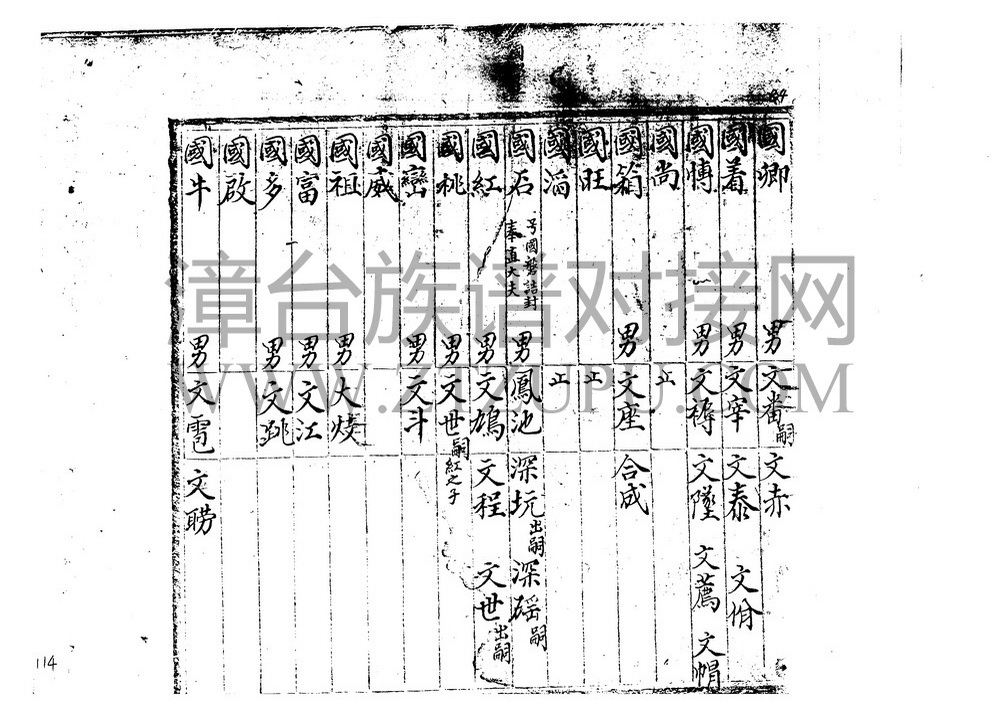 84
國卿 男 文番嗣 文赤
國着 男 文宰 文泰 文佾
國愽 男 文槈 文墬 文薦 文帽
國尚 止
國箱 男 文座 合成
國旺 止
國滔 止
國石 号國磐誥封奉直大夫 男 鳳池 深坑出嗣 深磘嗣
國紅 男 文鳩 文程 文世出嗣
國桃 男 文世嗣紅之子
國巒 男 文斗
國威
國祖 男 大㷮
國富 男 文江
國多 男 文跳
國啟
國牛 男 文雹 文聯
114
漳台族谱对接网
WWW.ZTZUPU.COM